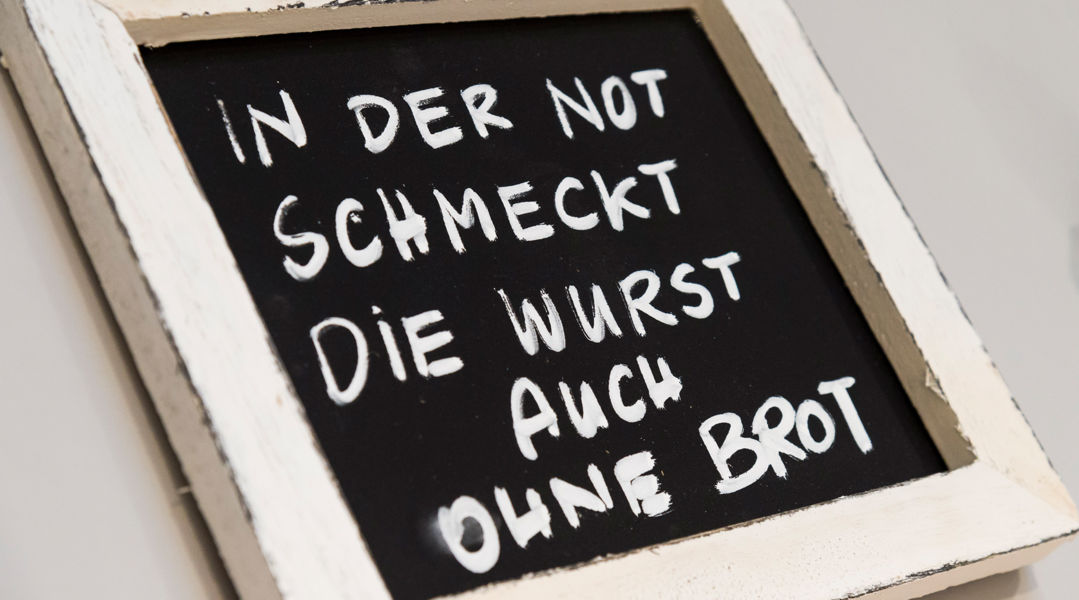 IN DER NOT
SCHMECKT
DiE WURST
AUCH
OHNE BROT